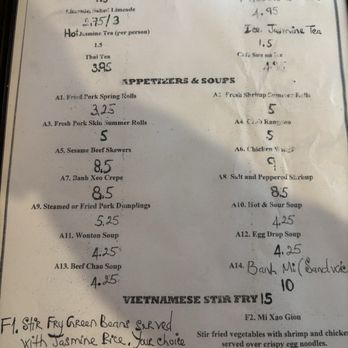 Limeade
4.95
2.75/3
Hot Jasmine Tea (per person)
Ice Jasmine Tea
1.5
1.5
Thai Tea
3.95
4.95
APPETIZERS & SOUPS
A1. Fried Pork Spring Rolls
A2. Fresh Shrimp Summer Rolls
3.25
5
A3. Fresh Pork Skin Summer Rolls
A4. Crab Rangoon
5
5
A5. Sesame Beef Skewers
A6. Chicken Wings
8.5
9
A7. Banh Xeo Crepe
A8. Salt and Peppered Shrimp
8.5
8.5
A9. Steamed or Fried Pork Dumplings
A10. Hot & Sour Soup
5.25
4.25
A11. Wonton Soup
A12. Egg Drop Soup
4.25
4.25
A13. Beef Chao Soup
A14. Banh Mi (Sandwic
4.25
10
VIETNAMESE STIR FRY 15
F1. Stir Fry Green Beans served
with Jasmine Rice. Your choice
F2. Mi Xao Gion
Stir fried vegetables with shrimp and chicken
served over crispy egg noodles.